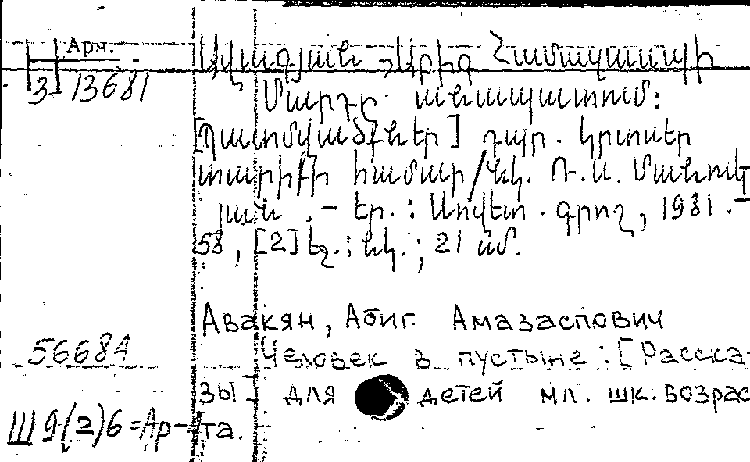 Арм.
Ավագյան Աբիգ Համազասպի
3 13681
Մարդը անապատում:
[Պատմվածքներ] դպր. կրտսեր
տարիքի համար/Նկ. Ռ. Ա. Մանուկ
յան .- Եր.: Սովետ. գրող, 1981.-
58, [2] էջ.: նկ.; 21 սմ.
Авакян, Абиг Амазаспович
56684
Человек в пустыне: [Расска-
зы] для детей мл. шк. возрас
Ш9(2)6=Ар-та.